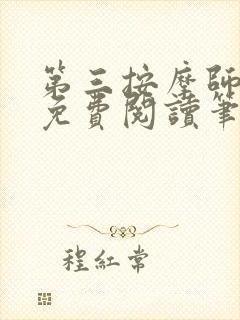 第三按摩師
免費閱讀筆
程紅常